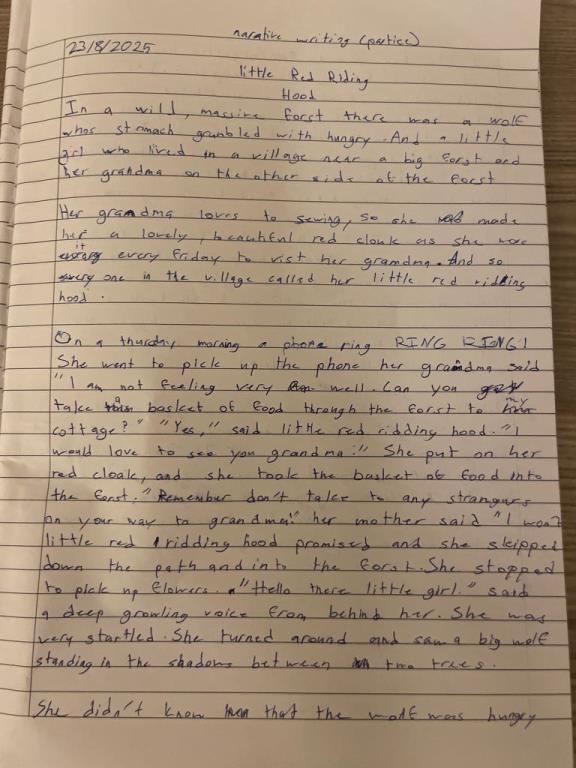 narative writing (partice)
23/8/2025
little Red Riding
Hood
In a wild, massive forst there was a wolf
whos stomach grumbled with hungry. And a little
girl who lived in a village near a big forst and
her grandma on the other side of the forst
Her grandma loves to sewing, so she made
her a lovely, beautiful red cloak as she wore
it every Friday to vist her gramdma. And so
every one in the village called her little red ridding
hood.
On a thursday morning a phone ring RING RING!
She went to pick up the phone her grandma said
"I am not feeling very well. Can you
take a basket of food through the forst to my
cottage?" "Yes," said little red ridding hood. "I
would love to see you grandma!" She put on her
red cloak, and she took the basket of food into
the forst." Remember don't talke to any strangurs
on your way to grandma!" her mother said "I won't
little red ridding hood promised and she skipped
down the path and into the forst. She stopped
to pick up flowers. "Hello there little girl." said
a deep growling voice from behind her. She was
very startled. She turned around and saw a big wolf
standing in the shadows between two trees.
She didn't know that the wolf was hungry